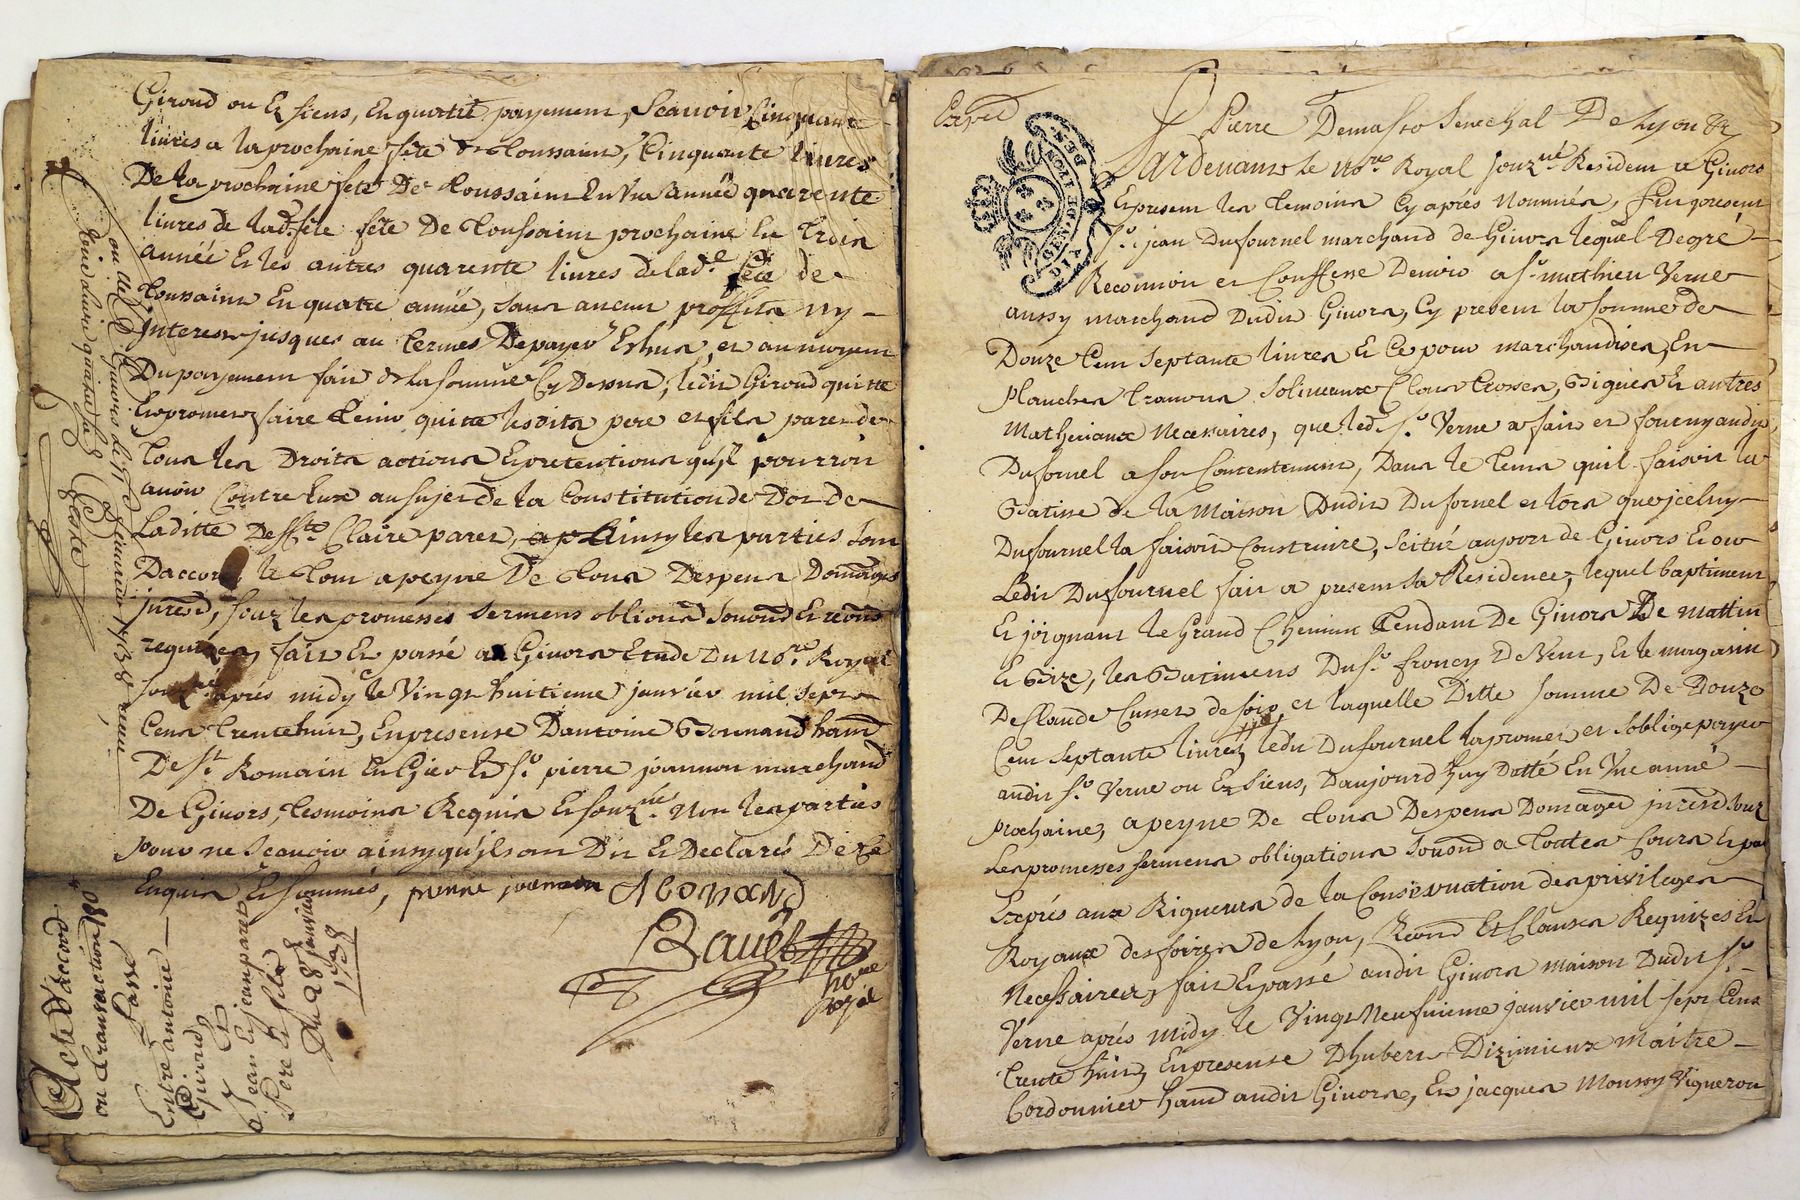 Giroud ou Et siens, En quattre payement, Scauoir Cinquante
liures a la prochaine fête de Toussaint, Cinquante liures
De la prochaine fete De Toussaint En Vn année quarente
liures de lad. fête De Toussaint prochaine En trois
année Et les autres quarente liures de lad.e fête de
Toussaint En quatre année, sans aucun proffits ny
Interest jusques au termes De payer Eschus, et au moyen
Du payement fait de la somme Cy Dessus, ledit Giroud quitte
Et promet faire tenir quitte lesdits pere et fils paret de
tous les Droits actions Et pretentions qu'il pourroit
auoir Contre Eux au sujet de la Constitution de Dot de
laditte Deff.te Claire paret, ainsy les parties sont
Daccord le tout a peyne De tous Despens Domages
jnrest, souz les promesses sermens obliõns soumõns Et renõns
requizes, fait Et passé a Giuors Etude Du no.re Royal
souz.né après midy le Vingt huitieme januier mil sept
Cent trente huit, En presense Dantoine Bonnand habt
De S.t Romain En Gier Et S.r pierre joannon marchand
De Giuors, tesmoins Requis Et souz.né Non les parties
pour ne Scauoir ainsy qu'ils ont Dit Et Declarés De Ce
Enquis Et sommés, pierre joannon ABonand
Bauet
no.re
Royal
Acte D'accord
ou transaction
Passé
Entre antoine
Giroud
Et
a Jean Et jean paret
Pere Et fils
Du 28e januier
1738
Expedié
DE LYON
GENERALITE
Pierre Demasso Senechal De Lyon Et
Pardeuant le no.re Royal souz.né Resident a Giuors
Et present les temoins Cy aprés Nommés, fut present
S.r jean Dufournel marchand de Giuors lequel De gré
Reconnoit et Confesse Deuoir a S.r mathieu Verne
aussy marchand Dudit Giuors, Cy present la somme de
Douze Cent Septante liures Et Ce pour marchandises, En
Planches trauons Soliueaux Clous Crosses, Et autres
Matheriaux Necessaires, que led. S.r Verne a fait et fourny audit
Dufornel a son Contentement, Dans le tems quil faisoit la
Batisse de la maison Dudit Dufornel et lors que jceluy
Dufournel la faisoit Construire, Scitué au port de Giuors Et ou
Ledit Dufournel fait a present sa Residence, lequel baptiment
Et joignant le Grand Chemin tendant De Giuors De mattin
Et Bize, les Batimens Du S.r francy De Vent, Et le magasin
De Claude Cusset de soir, et laquelle Ditte somme De Douze
Cent septante liures, ledit Dufournel la promet et s'oblige payer
audit S.r Verne ou Et Siens, D'aujourd'huy Datté En Vne anné
prochaine, a peyne De tous Despens Domages jnrest souz
Les promesses sermens obligations soumõns a toutes Cours Et par
Exprés aux Rigueurs de la Conseruation des priuileges
Royaux des foires de Lyon, Renõns Et Clauses Requizes Et
Necessaires, fait Et passé audit Giuors maison Dudit S.r
Verne aprés midy le Vingt Neufuieme januier mil sept Cent
trente huit, En presense D'hubert Dizimieux maître
Cordonnier habt audit Giuors, Et jacques Monsoy Vigneron